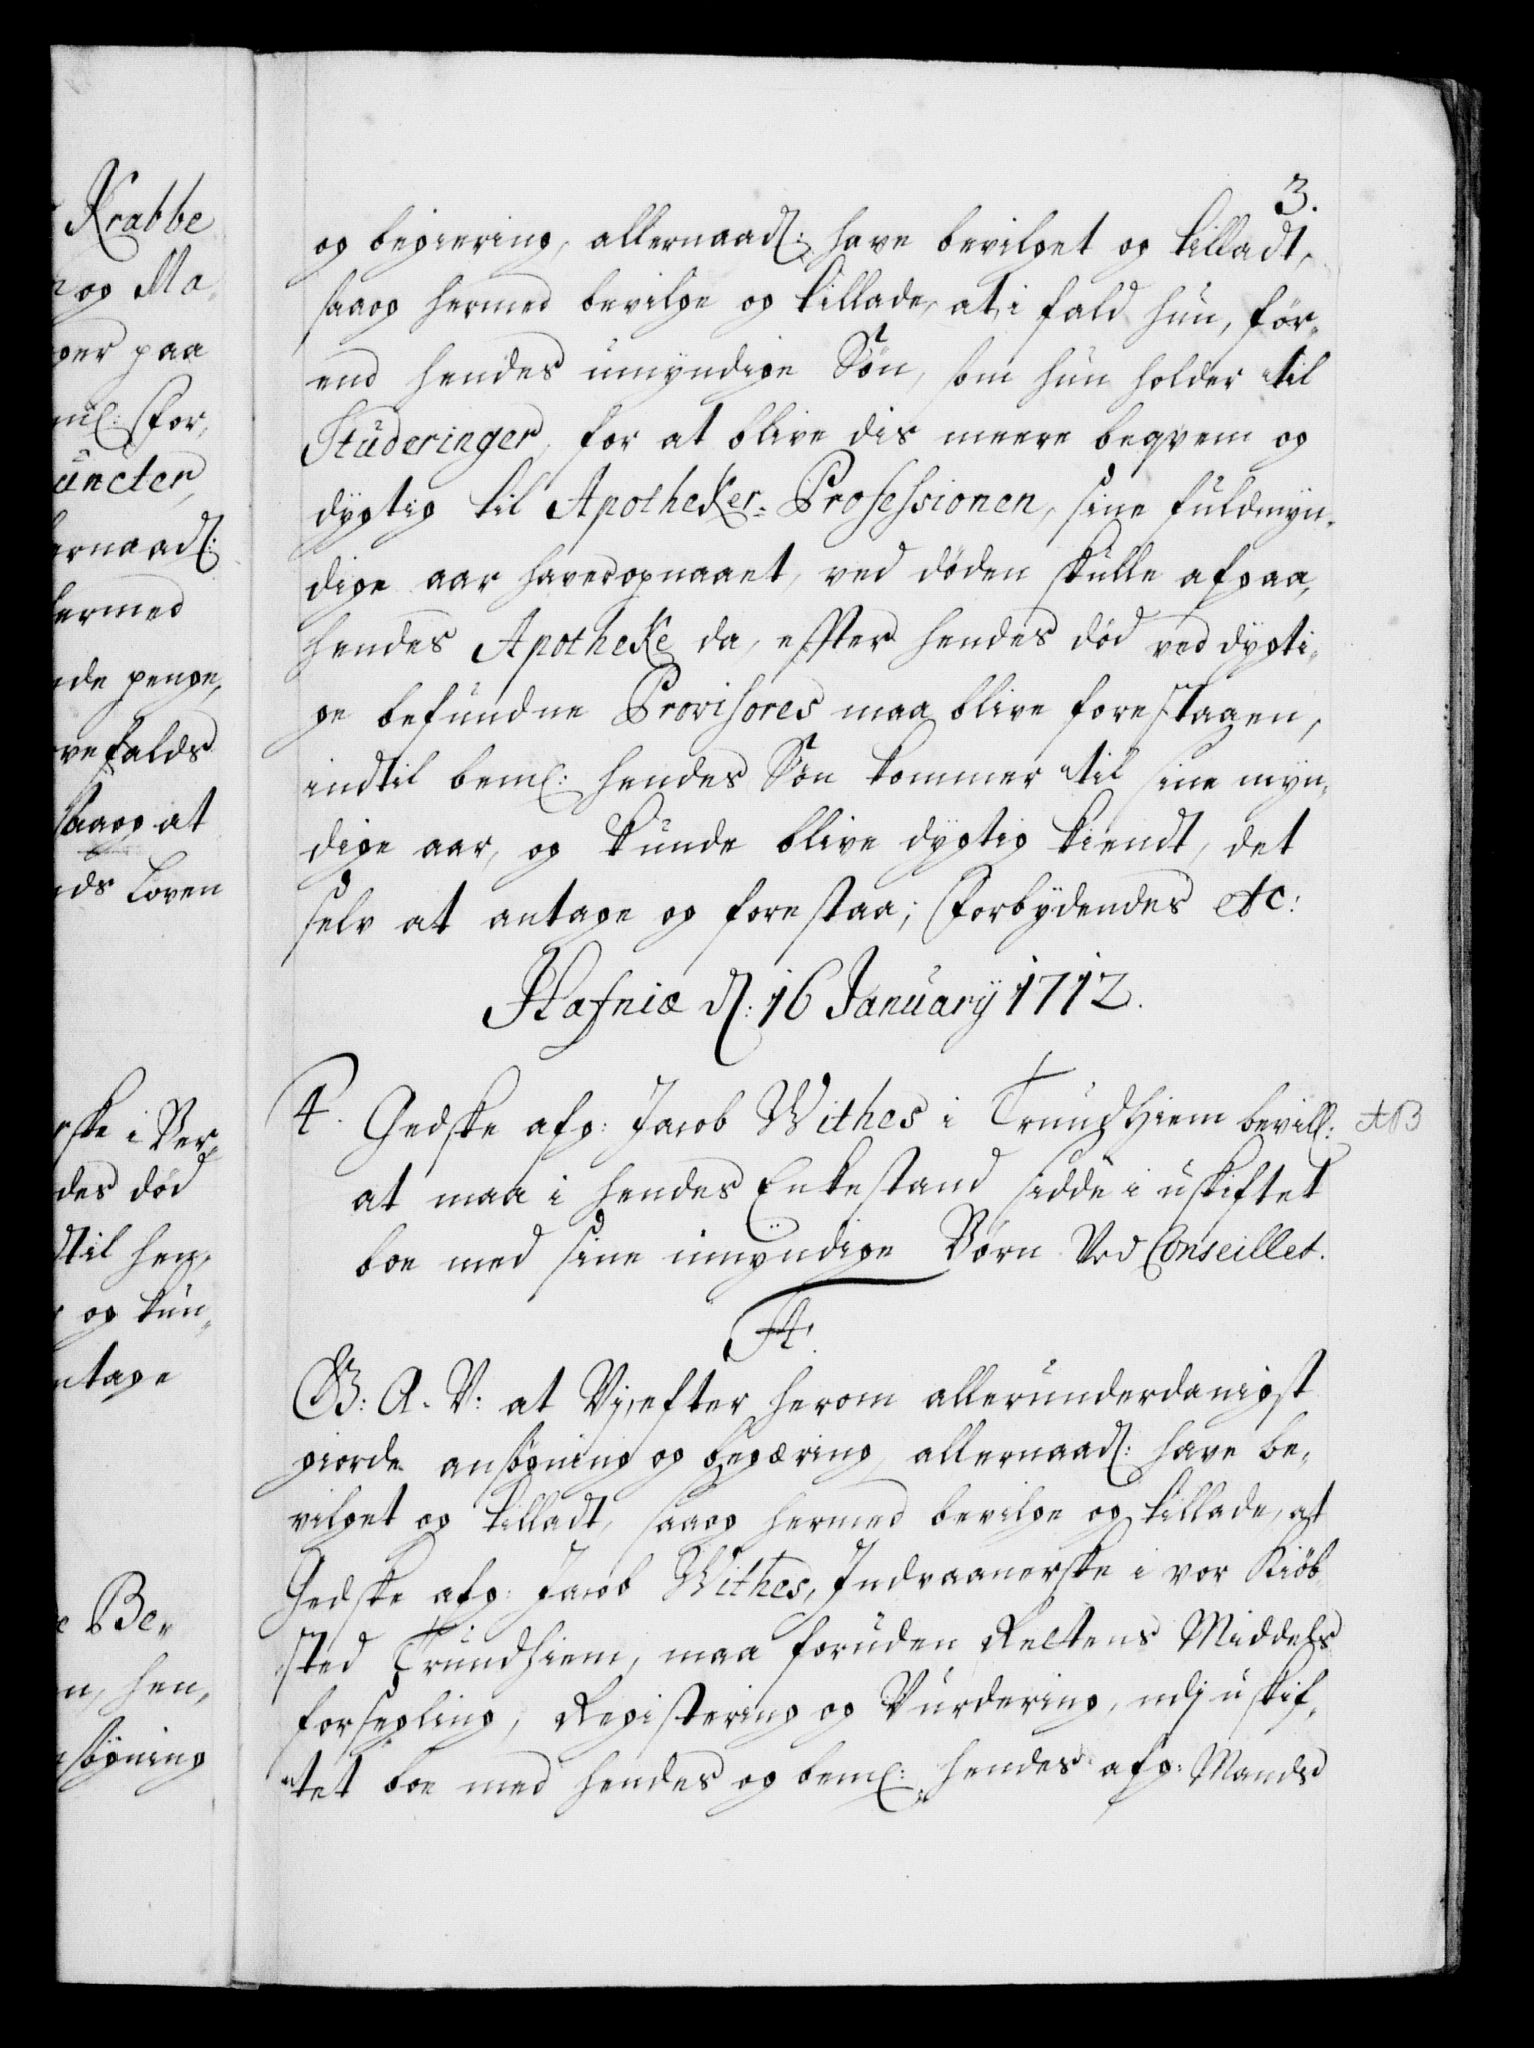 Krabbe
og Ma¬
ger paa
ml: for¬
uncter
ernaad:
hermed
nde penge,
vefalds
saaog at
nds Loven
rske i Ber¬
des død
til hen¬
og kun¬
ntage
e Be¬
n, hen¬
søgning
3.
og begiering, allernaad: have bevilget og tilladt,
saaog hermed bevilge og tillade, at i fald hun, før¬
end hendes umyndige Søn, som hun holder til
Studeringer, for at blive dis meere beqvem og
dygtig til Apotheker-Professionen, sine fuldmyn¬
dige aar haver opnaaet, ved døden skulle afgaa,
hendes Apotheke da, efter hendes død ved dygti¬
ge befundne Provisores maa blive forestaaen,
indtil beml: hendes Søn kommer til sine myn¬
dige aar, og kunde blive dygtig kiendt, det
selv at antage og forestaa; Forbydendes etc:
Hafniæ d: 16 Januarij 1712.
4. Gedske afg: Jacob Withes i Trundhiem bevill: AB
at maa i hendes Enkestand sidde i uskiftet
boe med sine umyndige Børn. Ved Conseillet.
F4.
G: A. V: at Vi, efter herom allerunderdanigst
giorde ansøgning og begæring, allernaad: have be¬
vilget og tilladt, saaog hermed bevilge og tillade, at
Gedske afg: Jacob Withes, Indvaanerske i vor Kiøb¬
sted Trundhiem, maa foruden Rettens Middels
forsegling, Registering og Vurdering, udj uskif¬
tet boe med hendes og beml: hendes afg: Mands